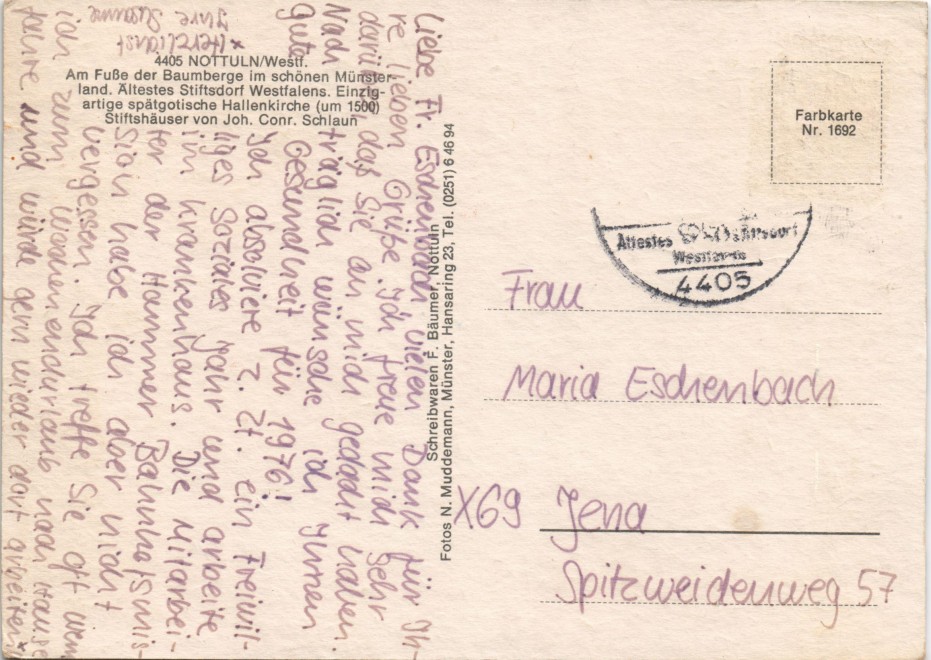 4405 NOTTULN/Westf.
Am Fuße der Baumberge im schönen Münster-
land. Ältestes Stiftsdorf Westfalens. Einzig-
artige spätgotische Hallenkirche (um 1500)
Stiftshäuser von Joh. Conr. Schlaun
Liebe Fr. Eschenbach, vielen Dank für Ih-
re lieben Grüße. Ich freue mich sehr
darü daß Sie an mich gedacht haben.
Nachträglich wünsche ich Ihnen
gute Gesundheit für 1976!
Ich absolviere z. Zt. ein Freiwil-
liges Soziales Jahr und arbeite
im Krankenhaus. Die Mitarbei-
ter der Hammer Bahnhofsmis-
sion habe ich aber nicht
vergessen. Ich treffe Sie oft wenn
ich zum Wochenendurlaub nach Hause
fahre und würde gern wieder dort arbeiten*
*Herzlichst
Ihre Susanne
Schreibwaren F. Bäumer, Nottuln
Fotos N. Muddemann, Münster, Hansaring 23, Tel. (0251) 6 46 94
Farbkarte
Nr. 1692
Ältestes Stiftsdorf
Westfalens
4405
Frau
Maria Eschenbach
X69 Jena
Spitzweidenweg 57